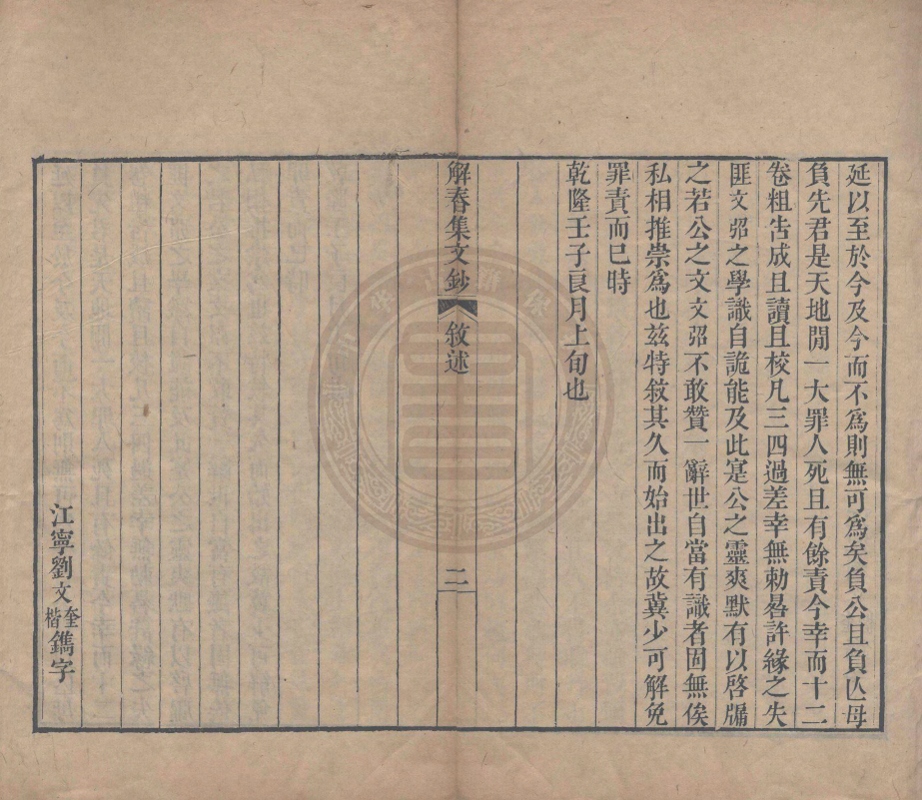 延以至於今及今而不爲則無可爲矣負公且負亾母
負先君是天地閒一大罪人死且有餘責今幸而十二
卷粗吿成且讀且校凡三四過差幸無勅晷許緣之失
匪文弨之學識自詭能及此寔公之靈爽默有以啓牖
之若公之文文弨不敢贊一辭世自當有識者固無俟
私相推崇爲也玆特敘其久而始出之故冀少可解免
罪責而已時
乾隆壬子㫰月上旬也
解舂集文鈔 敘述 二
江寧劉文奎楷鐫字